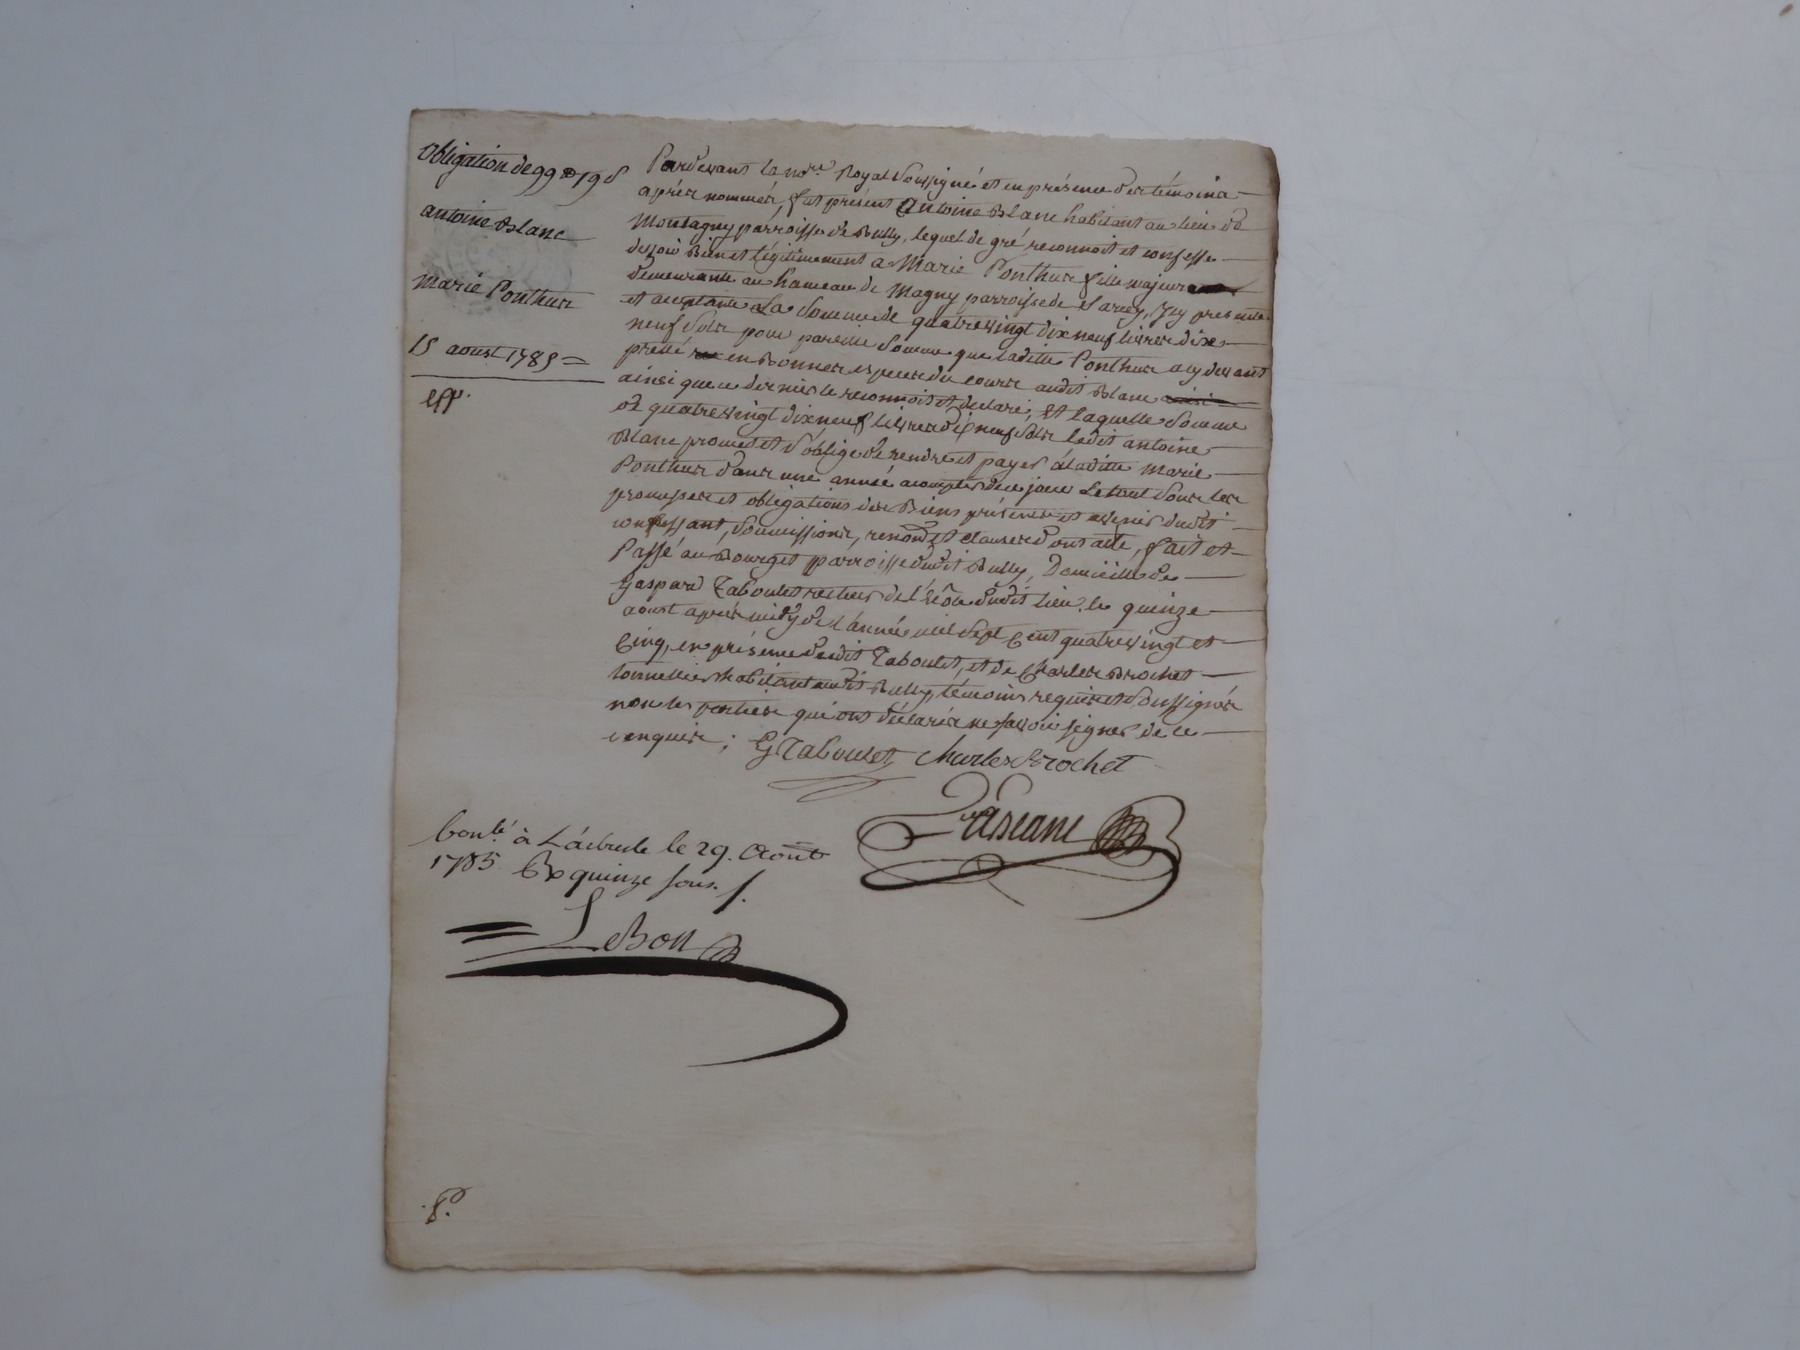 Obligation de 99 ₶ 19 s
antoine Blanc
Marie Ponthus
15 aoust 1785 =
Expp.
Pardevant le no.re Royal soussigné et en présence des témoins
après nommés, fut présent Antoine Blanc habitant au lieu de
Montagny parroisse de Bully, lequel de gré reconnoit et confesse
devoir Bien et légitimement a Marie Ponthus fille majeure
demeurante au hameau de Magny parroisse de Sarcey, Icy presente
et acceptante La Somme de quatrevingt dix neuf livres dix
neuf sols pour pareille Somme que laditte Ponthus a cy devant
pretté en Bonnes especes du cours audit Blanc
ainsi que ce dernier le reconnoit et declare, et laquelle Somme
de quatrevingt dix neuf livres dix neuf sols ledit antoine
Blanc promet et s'oblige de rendre et payer á laditte Marie
Ponthus dans une année a compter de ce jour Le tout sous les
promesses et obligations des Biens présents et avenir dudit
confessant, soumissions, renon.ons et clauses dont acte, fait et
Passé au Bourg et parroisse dudit Bully, Domicille de
Gaspard Taboulet recteur de l'école dudit lieu, le quinze
aoust après midy de l'année mil sept Cent quatrevingt et
Cinq, en présence dudit Taboulet, et de Charles Brochet
tonnellier habitant audit Bully, témoins requis et soussignés
non les parties qui ont déclarés ne sçavoir signer de ce
enquis ; G Taboulet Charles Brochet
Contlé à L'arbresle le 29. Aoust
1785 Rx quinze sous.
LeBon